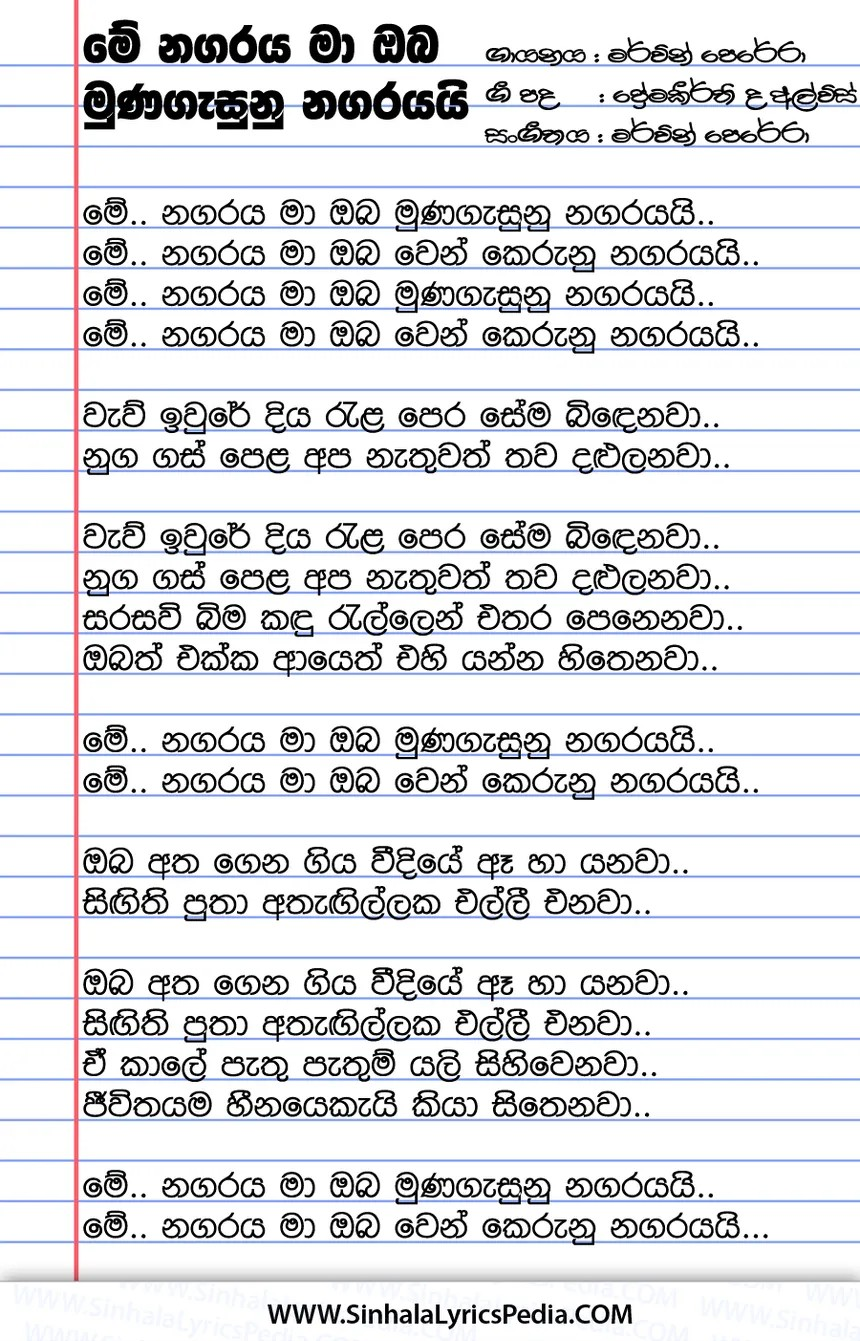 මේ නගරය මා ඔබ
මුණගැසුනු නගරයයි
ගායනය : මර්වින් පෙරේරා
ගී පද : ප්‍රේමකීර්ති ද අල්විස්
සංගීතය : මර්වින් පෙරේරා
මේ.. නගරය මා ඔබ මුණගැසුනු නගරයයි..
මේ.. නගරය මා ඔබ වෙන් කෙරුනු නගරයයි..
මේ.. නගරය මා ඔබ මුණගැසුනු නගරයයි..
මේ.. නගරය මා ඔබ වෙන් කෙරුනු නගරයයි..
වැව් ඉවුරේ දිය රැළ පෙර සේම බිඳෙනවා..
නුග ගස් පෙළ අප නැතුවත් තව දළුලනවා..
වැව් ඉවුරේ දිය රැළ පෙර සේම බිඳෙනවා..
නුග ගස් පෙළ අප නැතුවත් තව දළුලනවා..
සරසවි බිම කඳු රැල්ලෙන් එතර පෙනෙනවා..
ඔබත් එක්ක ආයෙත් එහි යන්න හිතෙනවා..
මේ.. නගරය මා ඔබ මුණගැසුනු නගරයයි..
මේ.. නගරය මා ඔබ වෙන් කෙරුනු නගරයයි..
ඔබ අත ගෙන ගිය වීදියේ ඈ හා යනවා..
සිඟිති පුතා අතැඟිල්ලක එල්ලී එනවා..
ඔබ අත ගෙන ගිය වීදියේ ඈ හා යනවා..
සිඟිති පුතා අතැඟිල්ලක එල්ලී එනවා..
ඒ කාලේ පැතු පැතුම් යලි සිහිවෙනවා..
ජීවිතයම හීනයෙකැයි කියා සිතෙනවා..
මේ.. නගරය මා ඔබ මුණගැසුනු නගරයයි..
මේ.. නගරය මා ඔබ වෙන් කෙරුනු නගරයයි...
www.SinhalaLyricsPedia.COM